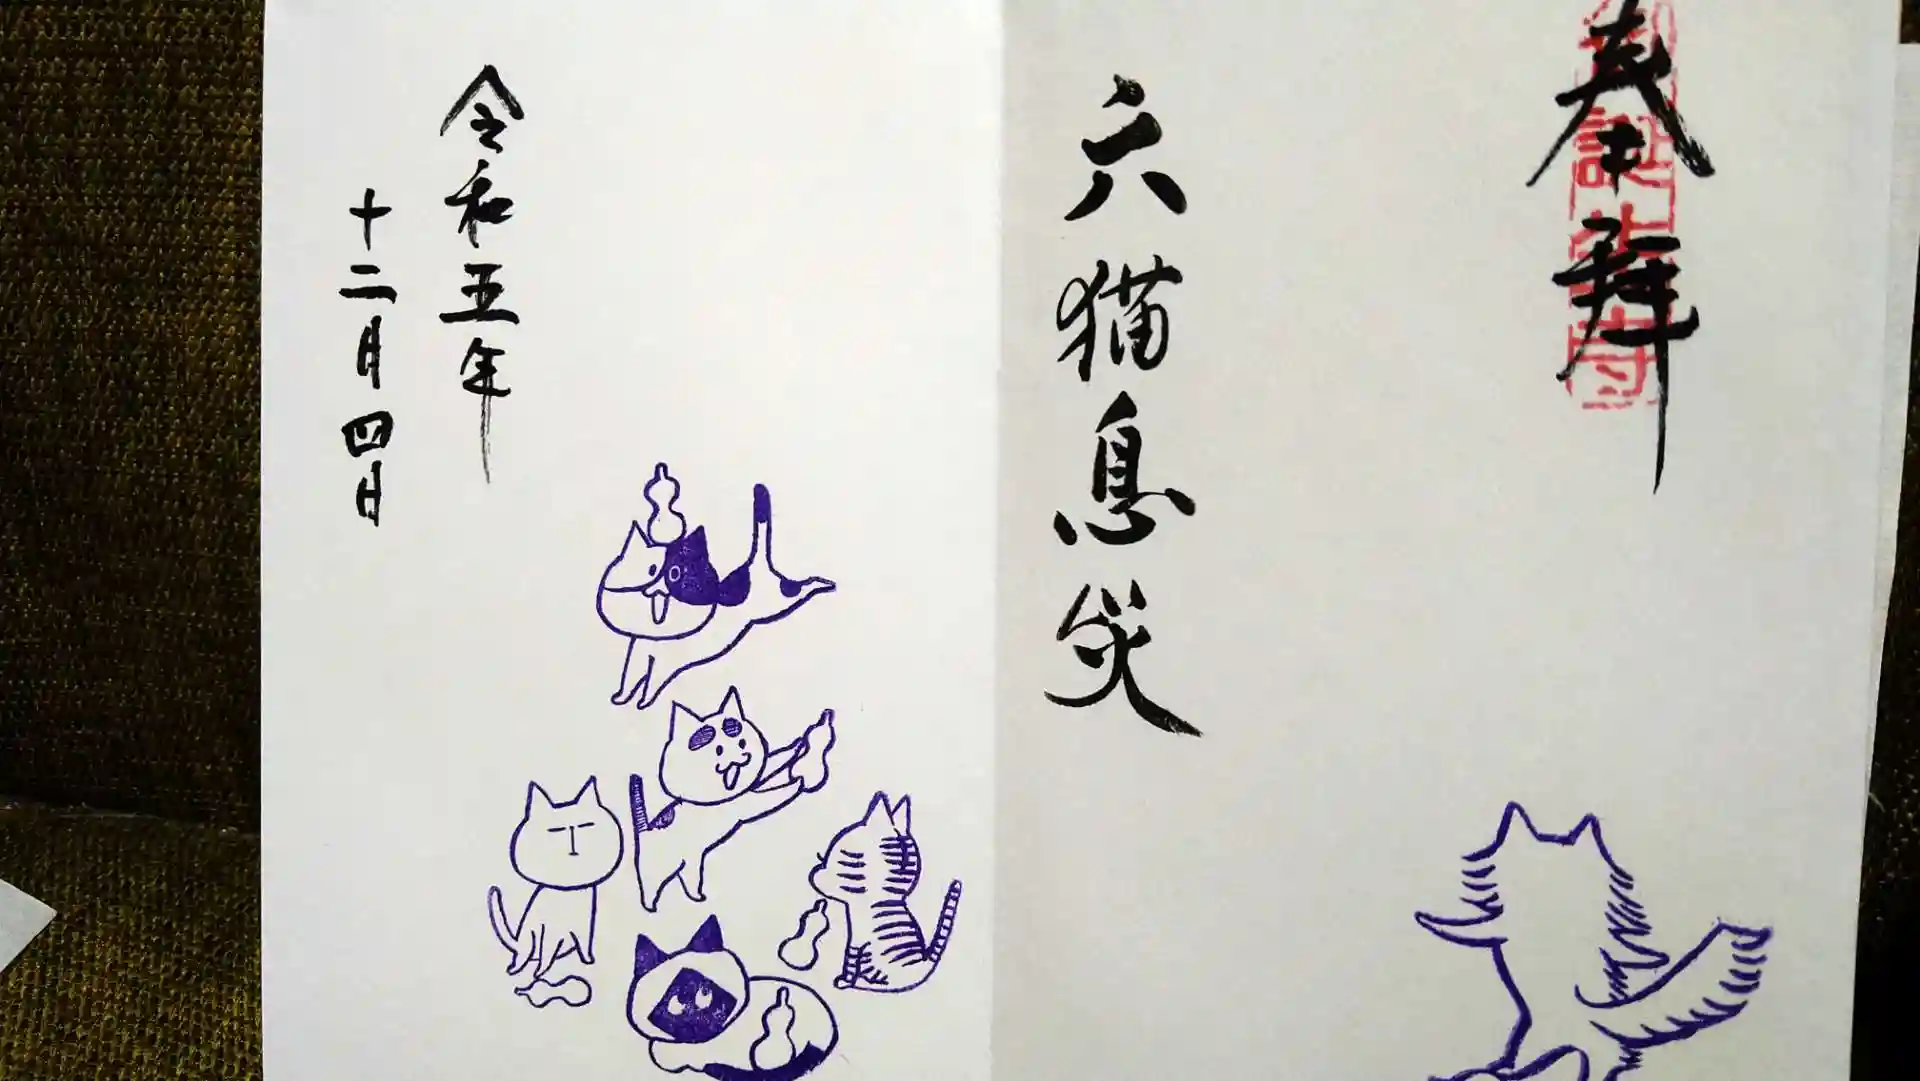 奉拝
六猫息災
令和五年
十二月四日